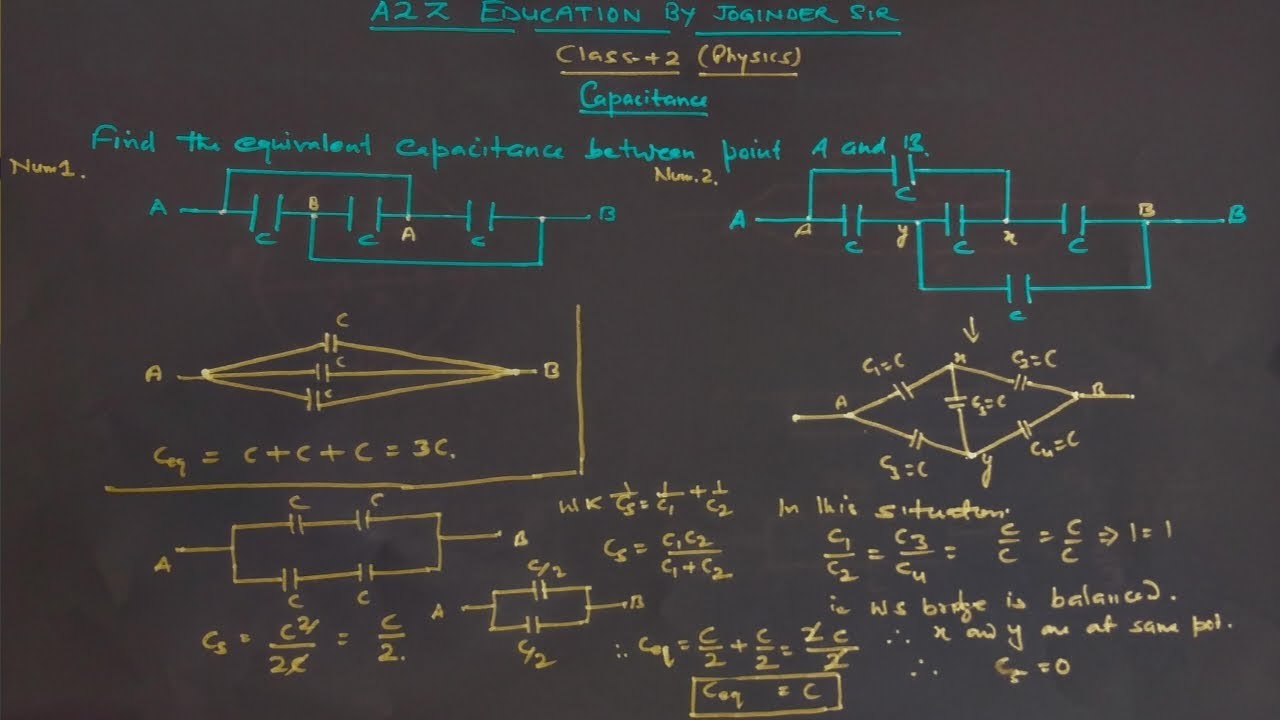 A2Z EDUCATION BY JOGINDER SIR
Class-+2 (Physics)
Capacitance
Find the equivalent capacitance between point A and B.
Num1.
A C B C A C B
Num.2.
C
A A C y C x C B B
C
C
A C B
C
Ceq = C+C+C = 3C.
x
C1=C C2=C
A C5=C B
C3=C C4=C
y
C C
A B
C C
Cs = C²/2C = C/2.
W K 1/Cs = 1/C1 + 1/C2
Cs = C1C2/C1+C2
C/2
A B
C/2
∴ Ceq = C/2 + C/2 = 2C/2
Ceq = C
In this situation.
C1/C2 = C3/C4 = C/C = C/C ⇒ 1=1
ie WS bridge is balanced.
∴ x and y are at same pot.
∴ C5 =0